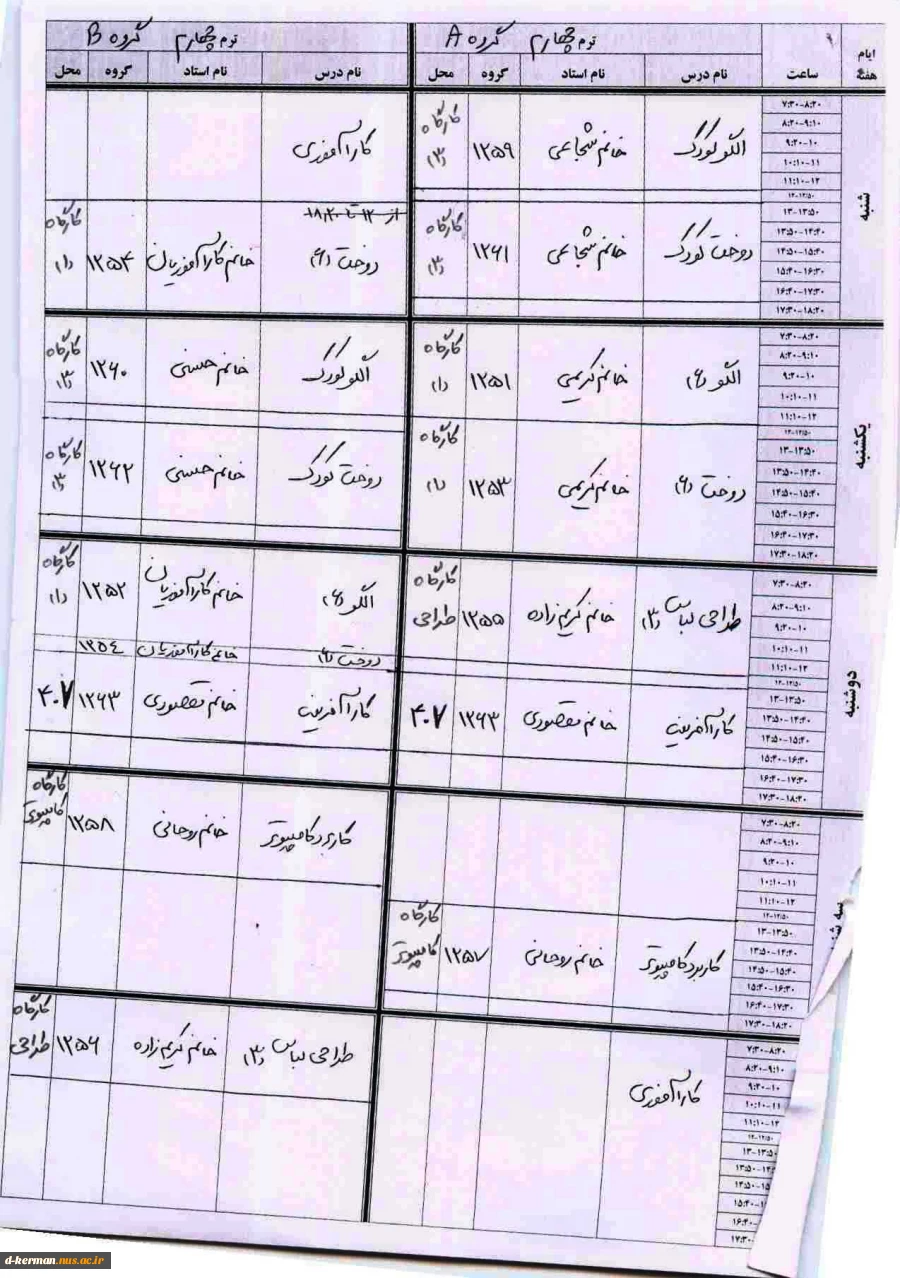 ترم چهارم گروه A ترم چهارم گروه B
ایام هفته ساعت نام درس نام استاد گروه محل نام درس نام استاد گروه محل
شنبه
۷:۳۰-۸:۲۰
۸:۲۰-۹:۱۰
۹:۲۰-۱۰
۱۰:۱۰-۱۱
۱۱:۱۰-۱۲
۱۲-۱۲:۵۰
۱۳-۱۳:۵۰
۱۳:۵۰-۱۴:۴۰
۱۴:۵۰-۱۵:۴۰
۱۵:۴۰-۱۶:۳۰
۱۶:۴۰-۱۷:۳۰
۱۷:۳۰-۱۸:۲۰
الگو کودک خانم شجاعی ۱۲۵۹ کارگاه (۳) کارآموزی
از ۱۳ تا ۱۸،۲۰
دوخت کودک خانم شجاعی ۱۲۶۱ کارگاه (۳) دوخت (۶) خانم کارآموزیان ۱۲۵۴ کارگاه (۱)
یکشنبه
۷:۳۰-۸:۲۰
۸:۲۰-۹:۱۰
۹:۲۰-۱۰
۱۰:۱۰-۱۱
۱۱:۱۰-۱۲
۱۲-۱۲:۵۰
۱۳-۱۳:۵۰
۱۳:۵۰-۱۴:۴۰
۱۴:۵۰-۱۵:۴۰
۱۵:۴۰-۱۶:۳۰
۱۶:۴۰-۱۷:۳۰
۱۷:۳۰-۱۸:۲۰
الگو (۶) خانم کریمی ۱۲۵۱ کارگاه (۱) الگو کودک خانم حسنی ۱۲۶۰ کارگاه (۳)
دوخت (۶) خانم کریمی ۱۲۵۳ کارگاه (۱) دوخت کودک خانم حسنی ۱۲۶۲ کارگاه (۳)
دوشنبه
۷:۳۰-۸:۲۰
۸:۲۰-۹:۱۰
۹:۲۰-۱۰
۱۰:۱۰-۱۱
۱۱:۱۰-۱۲
۱۲-۱۲:۵۰
۱۳-۱۳:۵۰
۱۳:۵۰-۱۴:۴۰
۱۴:۵۰-۱۵:۴۰
۱۵:۴۰-۱۶:۳۰
۱۶:۴۰-۱۷:۳۰
۱۷:۳۰-۱۸:۲۰
طراحی لباس (۳) خانم کریم زاده ۱۲۵۵ کارگاه طراحی الگو (۶) خانم کارآموزیان ۱۲۵۲ کارگاه (۱)
دوخت (۶) خانم کارآموزیان ۱۲۵۴
کارآفرینی خانم مقصودی ۱۲۶۳ ۴۰۷ کارآفرینی خانم مقصودی ۱۲۶۳ ۴۰۷
۷:۳۰-۸:۲۰
۸:۲۰-۹:۱۰
۹:۲۰-۱۰
۱۰:۱۰-۱۱
۱۱:۱۰-۱۲
۱۲-۱۲:۵۰
۱۳-۱۳:۵۰
۱۳:۵۰-۱۴:۴۰
۱۴:۵۰-۱۵:۴۰
۱۵:۴۰-۱۶:۳۰
۱۶:۴۰-۱۷:۳۰
۱۷:۳۰-۱۸:۲۰
کاربرد کامپیوتر خانم روحانی ۱۲۵۸ کارگاه کامپیوتر
کاربرد کامپیوتر خانم روحانی ۱۲۵۷ کارگاه کامپیوتر
۷:۳۰-۸:۲۰
۸:۲۰-۹:۱۰
۹:۲۰-۱۰
۱۰:۱۰-۱۱
۱۱:۱۰-۱۲
۱۲-۱۲:۵۰
۱۳-۱۳:۵۰
کارآموزی طراحی لباس (۳) خانم کریم زاده ۱۲۵۶ کارگاه طراحی
d-kerman.nus.ac.ir